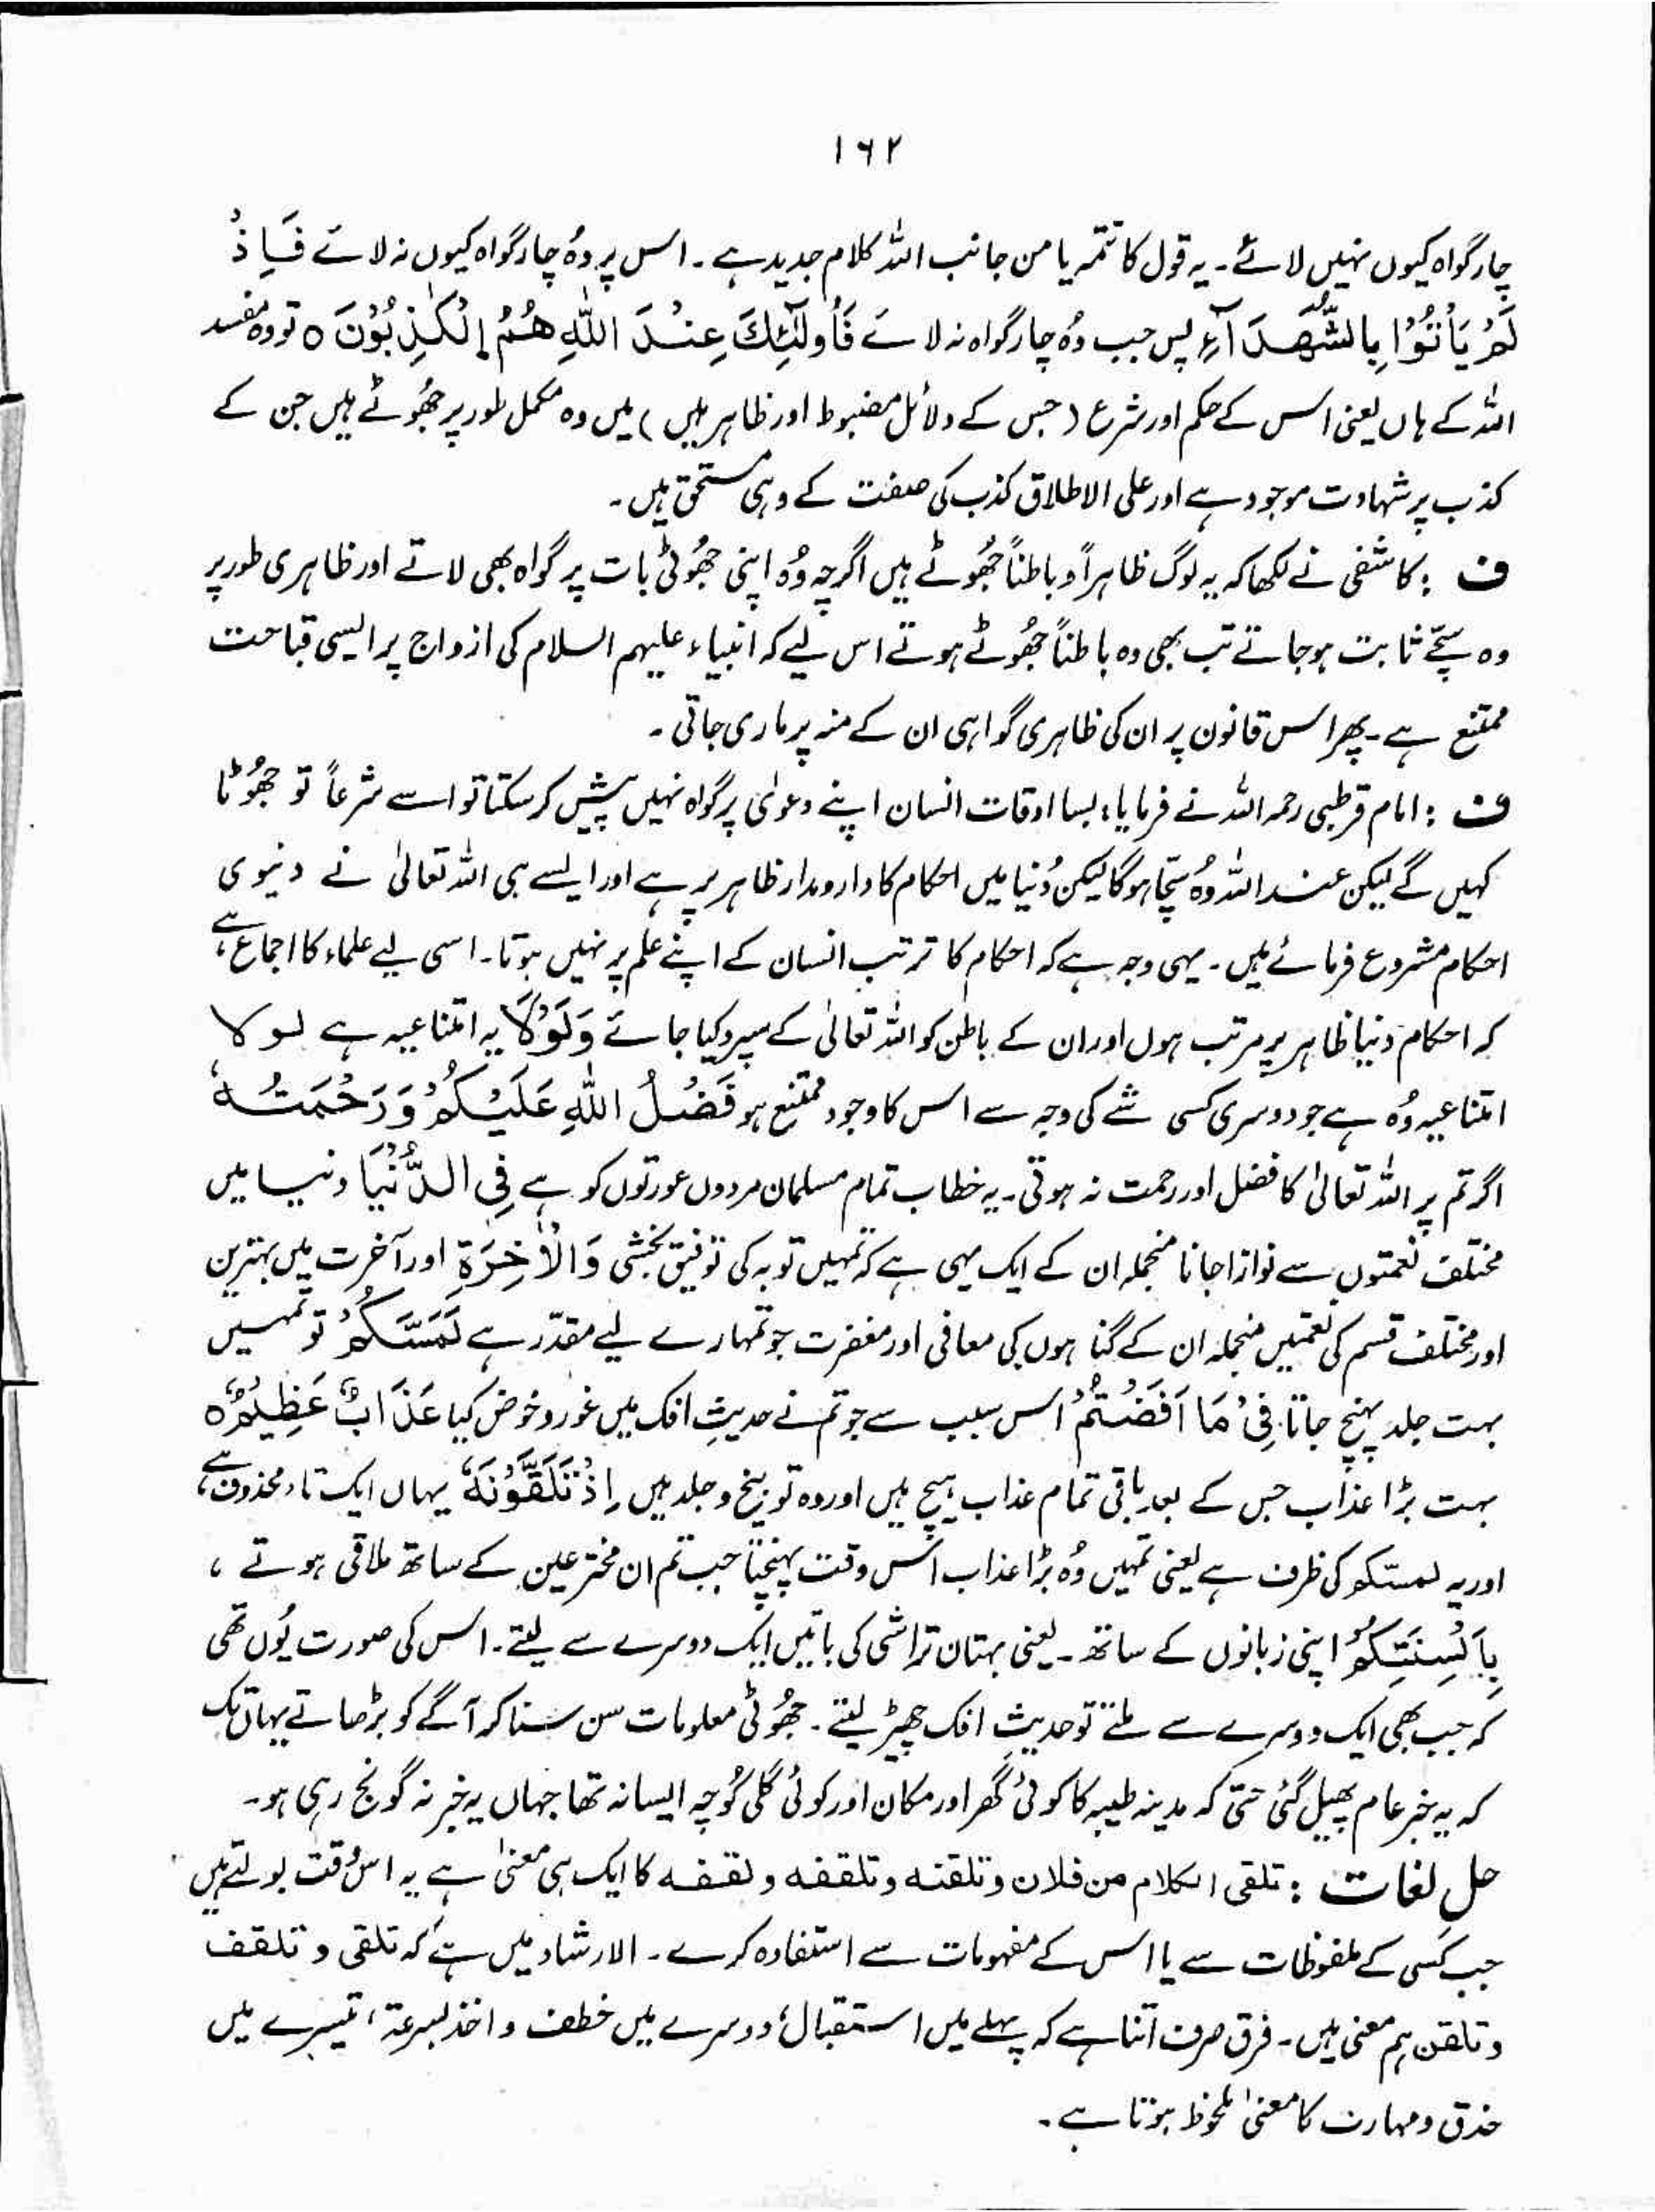 ۱۶۲
چار گواہ کیوں نہیں لائے۔ یہ قول کا تتمہ یا من جانب اللہ کلام جدید ہے۔ اس پر وُہ چار گواہ کیوں نہ لائے فَاِذْ
لَمْ يَاْتُوْا بِالشُّهَدَآءِ پس جب وُہ چار گواہ نہ لائے فَاُولٰٓئِكَ عِنْدَ اللّٰهِ هُمُ الْكٰذِبُوْنَ ○ تو وہ مفسد
اللہ کے ہاں یعنی اس کے حکم اور شرع (جس کے دلائل مضبوط اور ظاہر ہیں) میں وہ مکمل طور پر جھُوٹے ہیں جن کے
کذب پر شہادت موجود ہے اور علی الاطلاق کذب کی صفت کے وہی مستحق ہیں۔
ف : کاشفی نے لکھا کہ یہ لوگ ظاہراً و باطناً جھُوٹے ہیں اگرچہ وُہ اپنی جھُوٹی بات پر گواہ بھی لاتے اور ظاہری طور پر
وہ سچّے ثابت ہوجاتے تب بھی وہ باطناً جھُوٹے ہوتے اس لیے کہ انبیاء علیہم السلام کی ازواج پر ایسی قباحت
ممتنع ہے۔ پھر اس قانون پر ان کی ظاہری گواہی ان کے منہ پر ماری جاتی۔
ف : امام قرطبی رحمہ اللہ نے فرمایا: بسا اوقات انسان اپنے دعویٰ پر گواہ نہیں پیش کرسکتا تو اسے شرعاً تو جھُوٹا
کہیں گے لیکن عند اللہ وُہ سچّا ہوگا لیکن دُنیا میں احکام کا دارومدار ظاہر پر ہے اور ایسے ہی اللہ تعالیٰ نے دنیوی
احکام مشروع فرمائے ہیں۔ یہی وجہ ہے کہ احکام کا ترتب انسان کے اپنے علم پر نہیں ہوتا۔ اسی لیے علماء کا اجماع ہے،
کہ احکام دنیا ظاہر پر مرتب ہوں اور ان کے باطن کو اللہ تعالیٰ کے سپرد کیا جائے وَلَوْلَا یہ امتناعیہ ہے لولا
امتناعیہ وُہ ہے جو دوسری کسی شے کی وجہ سے اس کا وجود ممتنع ہو فَضْلُ اللّٰهِ عَلَيْكُمْ وَرَحْمَتُهٗ
اگر تم پر اللہ تعالیٰ کا فضل اور رحمت نہ ہوتی۔ یہ خطاب تمام مسلمان مردوں عورتوں کو ہے فِى الدُّنْيَا دنیا میں
مختلف نعمتوں سے نوازا جانا منجملہ ان کے ایک یہی ہے کہ تمہیں توبہ کی توفیق بخشی وَالْاٰخِرَةِ اور آخرت میں بہترین
اور مختلف قسم کی نعمتیں منجملہ ان کے گناہوں کی معافی اور مغفرت جو تمہارے لیے مقدّر ہے لَمَسَّكُمْ تو تمہیں
بہت جلد پہنچ جاتا فِىْ مَا اَفَضْتُمْ اس سبب سے جو تم نے حدیثِ افک میں غور و خوض کیا عَذَابٌ عَظِيْمٌ ○
بہت بڑا عذاب جس کے بعد باقی تمام عذاب ہیچ ہیں اور وہ توبیخ و جلد ہیں اِذْ تَلَقَّوْنَهٗ یہاں ایک تاء محذوف ہے،
اور یہ لمستکم کی ظرف ہے یعنی تمہیں وُہ بڑا عذاب اُس وقت پہنچتا جب تم ان مخترعین کے ساتھ ملاقی ہوتے،
بِاَلْسِنَتِكُمْ اپنی زبانوں کے ساتھ۔ یعنی بہتان تراشی کی باتیں ایک دوسرے سے لیتے۔ اس کی صورت یُوں تھی
کہ جب بھی ایک دوسرے سے ملتے تو حدیثِ افک چھیڑ لیتے۔ جھُوٹی معلومات سن سنا کر آگے کو بڑھاتے یہاں تک
کہ یہ خبر عام پھیل گئی حتیّٰ کہ مدینہ طیبہ کا کوئی گھر اور مکان اور کوئی گلی کُوچہ ایسا نہ تھا جہاں یہ خبر نہ گونج رہی ہو۔
حل لغات : تلقی الکلام من فلان و تلقنہ و تلقفہ و لقفہ کا ایک ہی معنیٰ ہے یہ اس وقت بولتے ہیں
جب کسی کے ملفوظات سے یا اس کے مفہومات سے استفادہ کرے۔ الارشاد میں ہے کہ تلقی و تلقف
و تلقن ہم معنی ہیں۔ فرق صرف اتنا ہے کہ پہلے میں استقبال، دوسرے میں خطف و اخذ بسرعۃ، تیسرے میں
حذق و مہارت کا معنیٰ ملحوظ ہوتا ہے۔